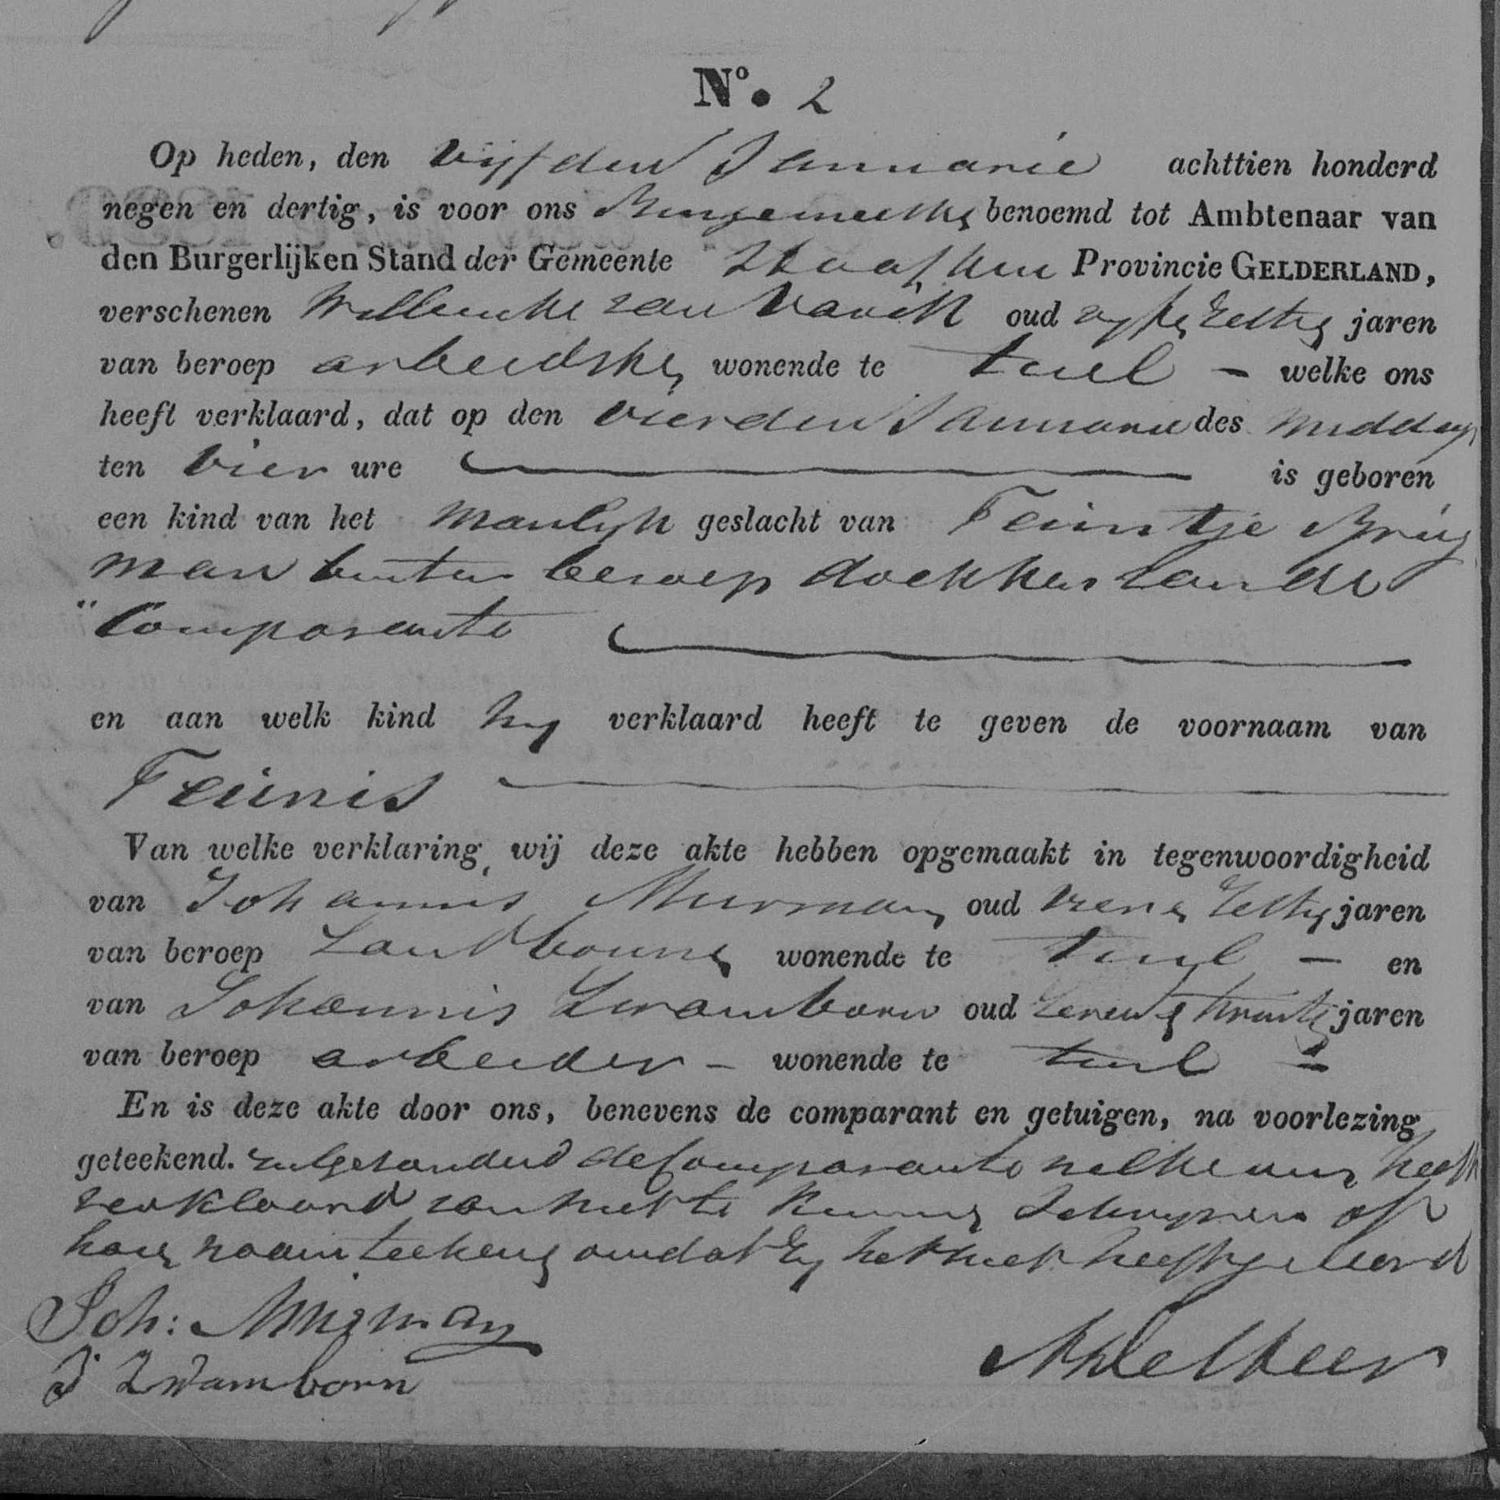 N°. 2
Op heden, den vijfden Januarie achttien honderd
negen en dertig, is voor ons Burgemeester benoemd tot Ambtenaar van
den Burgerlijken Stand der Gemeente Haaften Provincie GELDERLAND,
verschenen Willemke van Varik oud vyf en Zestig jaren
van beroep arbeidster wonende te tuil - welke ons
heeft verklaard, dat op den vierden Januarie des middags
ten vier ure is geboren
een kind van het manlyk geslacht van Teuntje Brug
man buiten beroep dochter van de
Comparante
en aan welk kind zy verklaard heeft te geven de voornaam van
Teunis
Van welke verklaring wij deze akte hebben opgemaakt in tegenwoordigheid
van Johannis oud en Zestig jaren
van beroep Landbouwer wonende te tuil - en
van Johannis Zwamborn oud Zeven en twintig jaren
van beroep arbeider - wonende te tuil -
En is deze akte door ons, benevens de comparant en getuigen, na voorlezing
geteekend. uitgezonderd de Comparante welke ons heeft
verklaard van niet te kunnen Schryven of
haar naam teekenen omdat Zy het niet heeft geleerd
Joh:
J Zwamborn